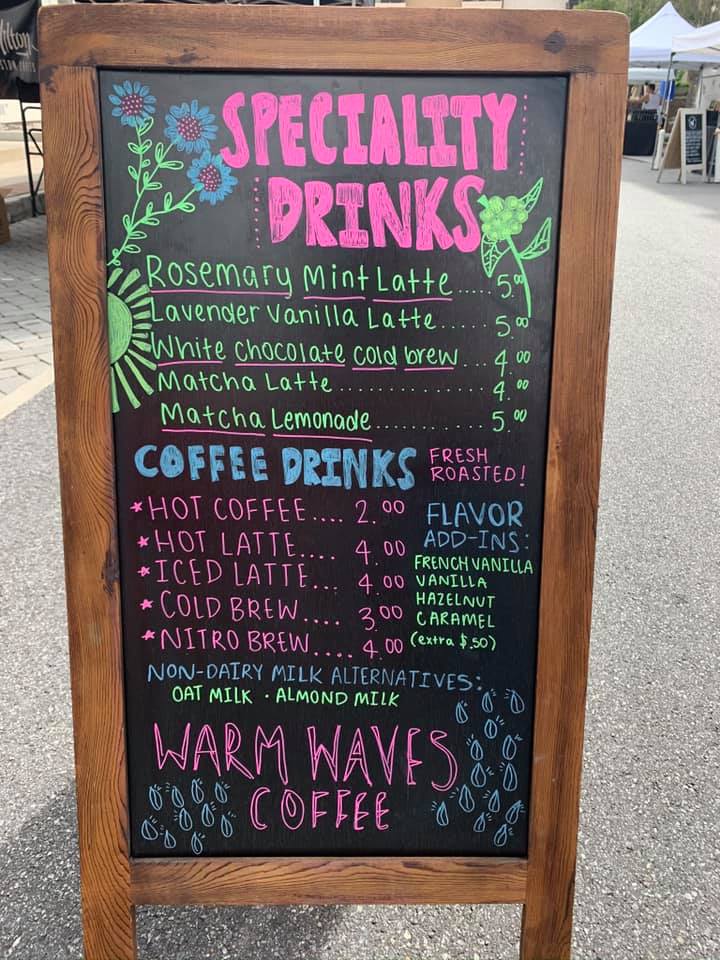 Hilton
SPECIALITY
DRINKS
Rosemary Mint Latte..... 5.00
Lavender Vanilla Latte...... 5.00
White chocolate cold brew ... 4.00
Matcha Latte.................. 4.00
Matcha Lemonade............. 5.00
COFFEE DRINKS
FRESH
ROASTED!
* HOT COFFEE.... 2.00
* HOT LATTE.... 4.00
* ICED LATTE... 4.00
* COLD BREW.... 3.00
* NITRO BREW.... 4.00
FLAVOR
ADD-INS:
FRENCH VANILLA
VANILLA
HAZELNUT
CARAMEL
(extra $.50)
NON-DAIRY MILK ALTERNATIVES:
OAT MILK · ALMOND MILK
WARM WAVES
COFFEE